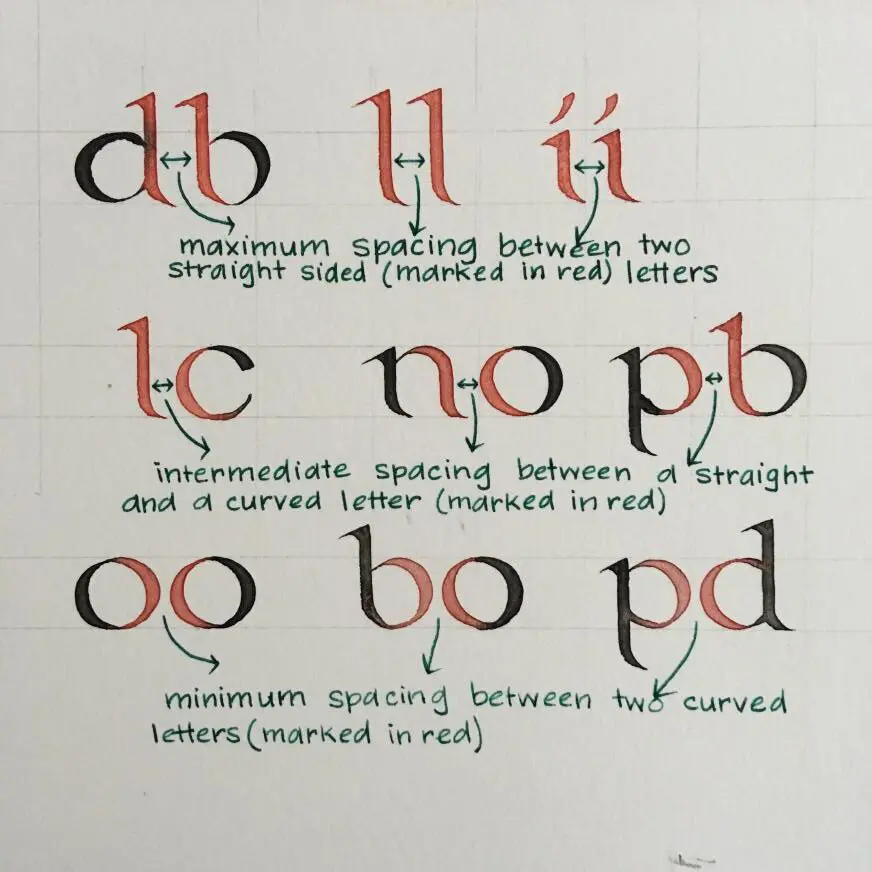 db ll íí
maximum spacing between two
straight sided (marked in red) letters
lc no pb
intermediate spacing between a straight
and a curved letter (marked in red)
oo bo pd
minimum spacing between two curved
letters (marked in red)